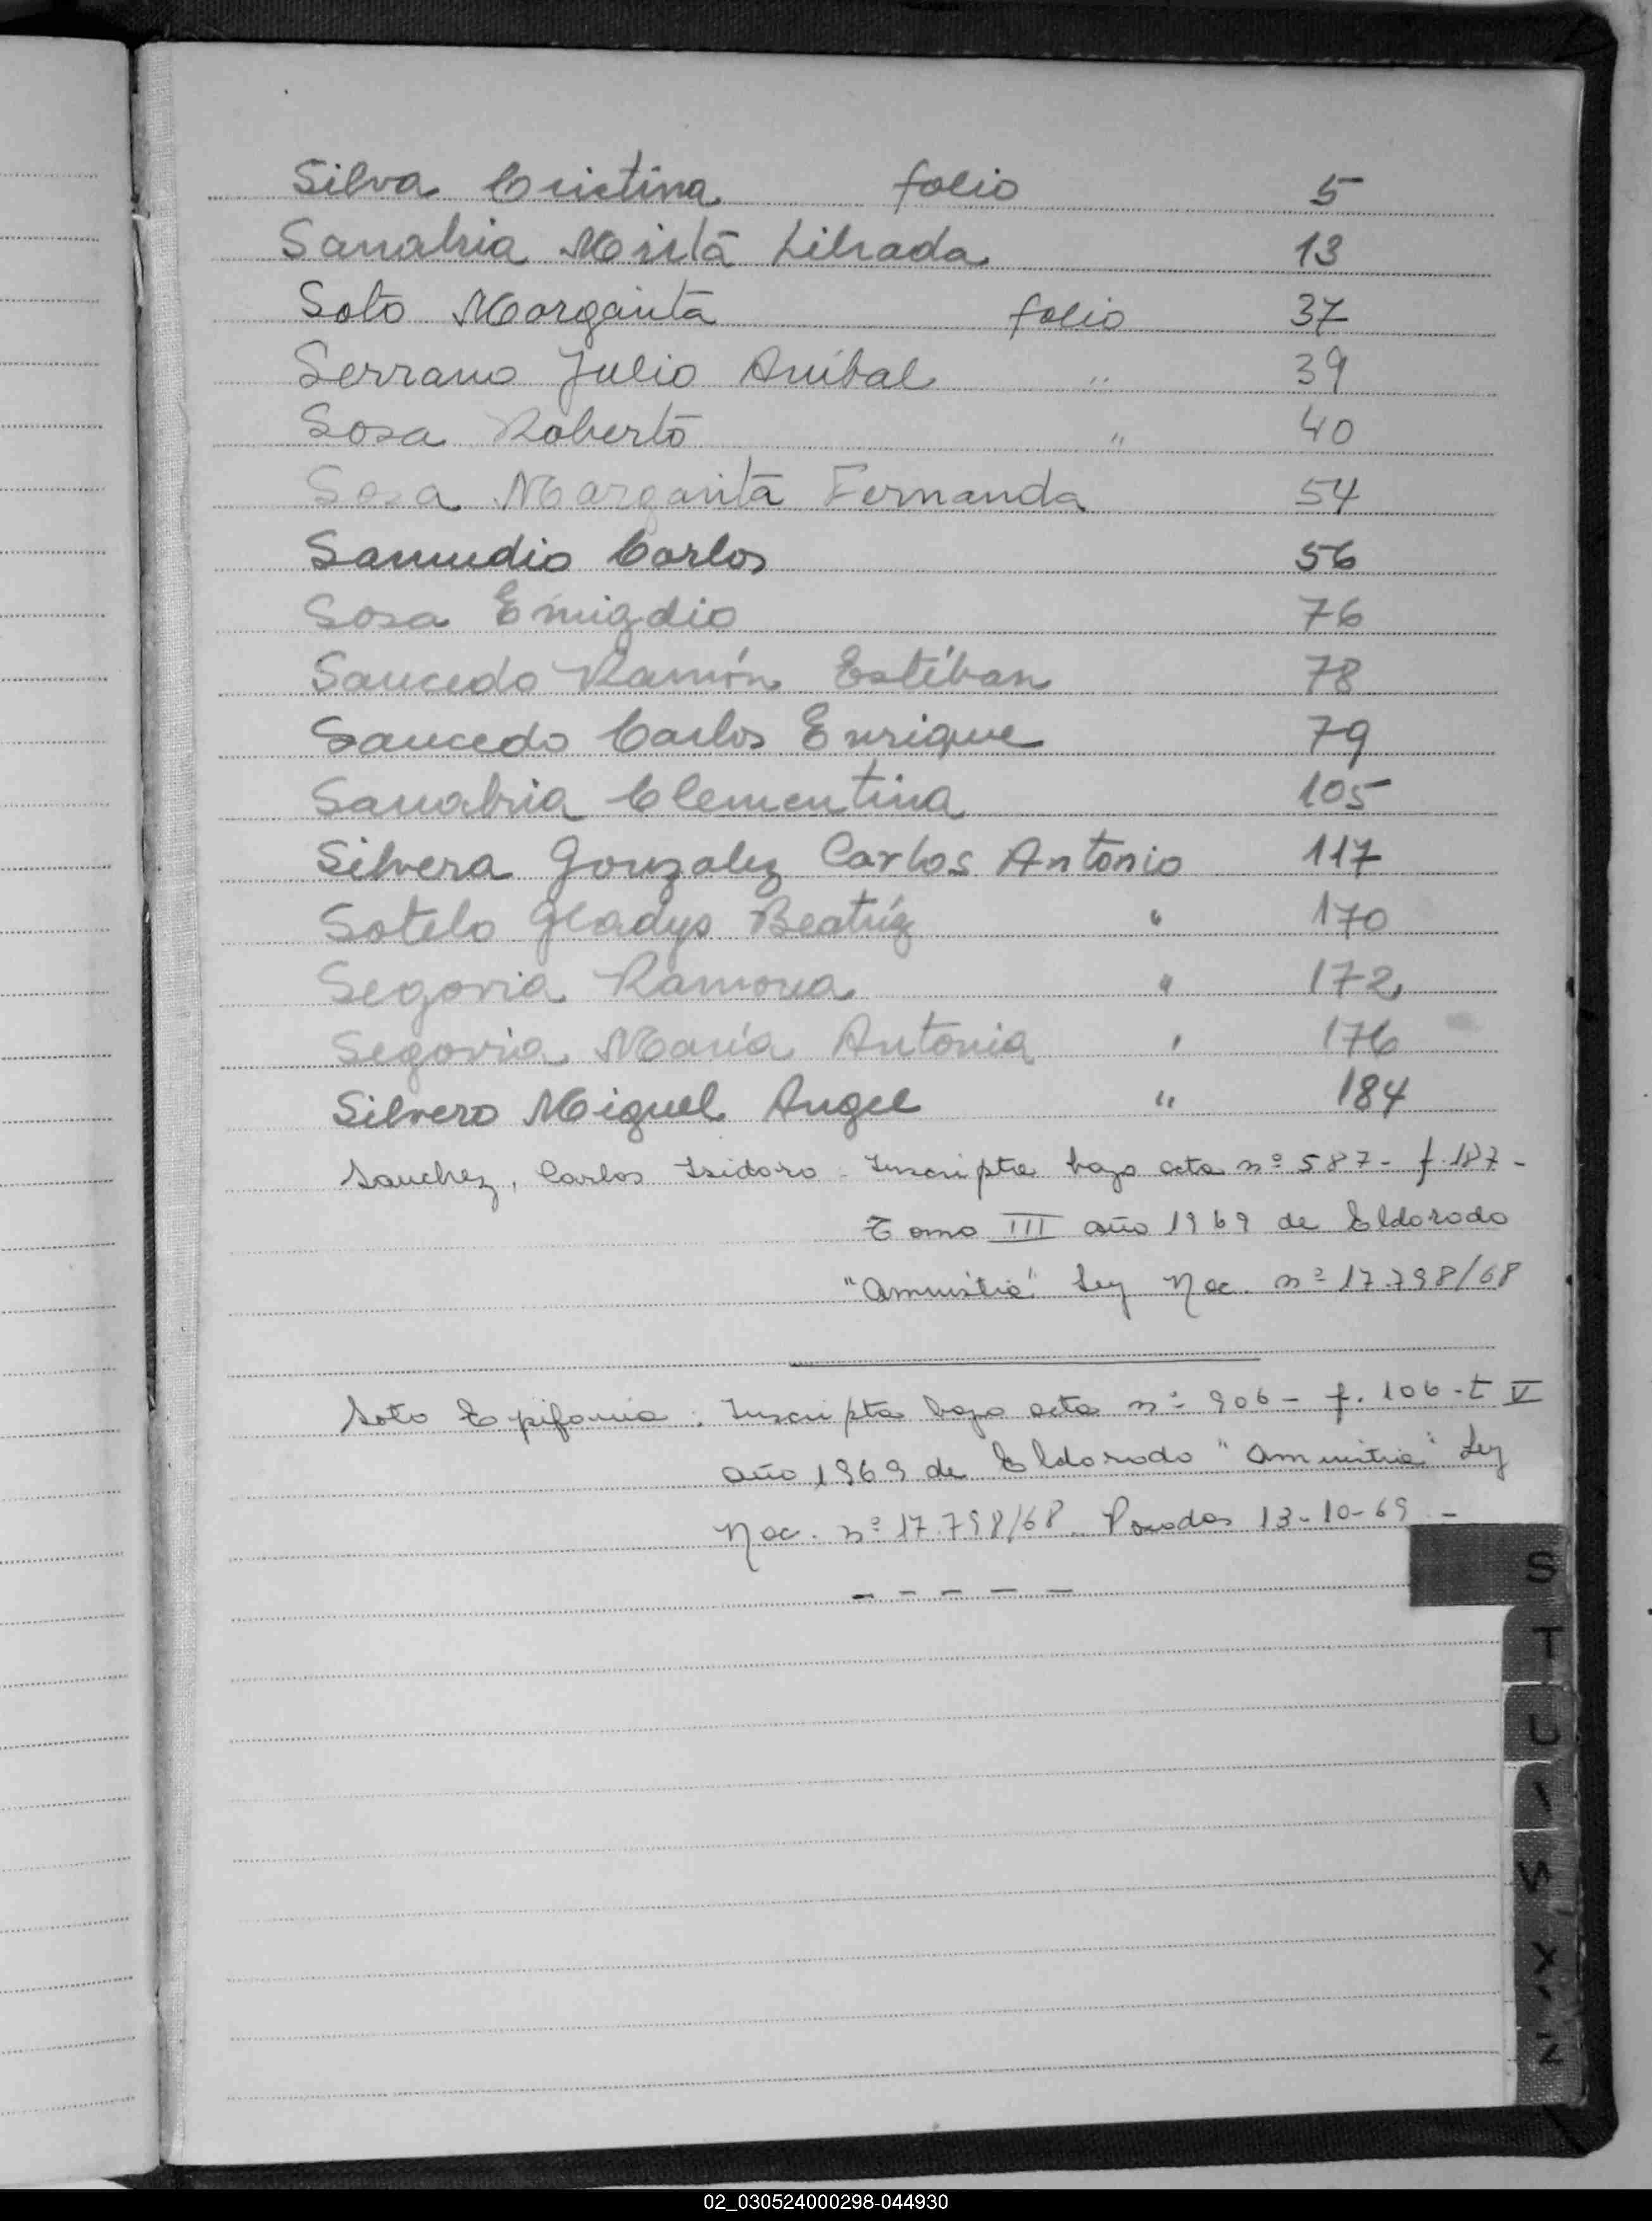 Silva Cristina folio 5
Sanabria Mirta Librada 13
Soto Margarita folio 37
Serrano Julio Aníbal " 39
Sosa Roberto " 40
Sosa Margarita Fernanda 54
Samudio Carlos 56
Sosa Emigdio 76
Saucedo Ramón Estéban 78
Saucedo Carlos Enrique 79
Sanabria Clementina 105
Silvera Gonzalez Carlos Antonio 117
Sotelo Gladys Beatríz " 170
Segovia Ramona " 172
Segovia María Antonia " 176
Silvero Miguel Angel " 184
Sanchez, Carlos Isidoro - Inscripta bajo acta nº 587 - f. 187 -
Tomo III año 1969 de Eldorado
"Amnistia" Ley Nac. nº 17.798/68
Soto Epifania. Inscripta bajo acta nº 906 - f. 106 - t V
año 1969 de Eldorado "Amnistia" Ley
Nac. nº 17.798/68. Posadas 13-10-69 -
S
T
U
X
Z
02_030524000298-044930